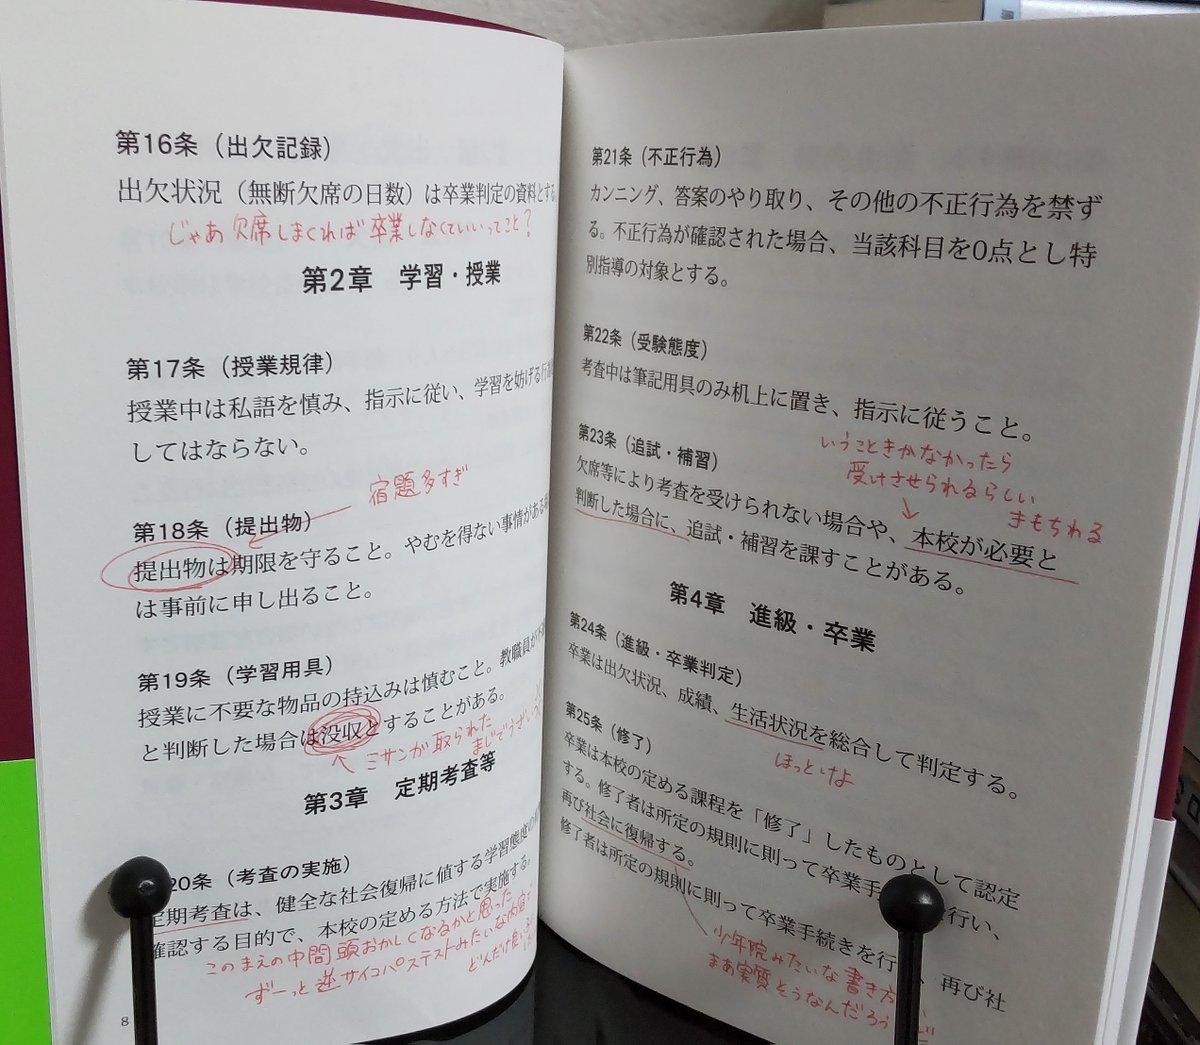 第16条（出欠記録）
出欠状況（無断欠席の日数）は卒業判定の資料とする。
じゃあ欠席しまくれば卒業しなくていいってこと？
第2章　学習・授業
第17条（授業規律）
授業中は私語を慎み、指示に従い、学習を妨げる行
してはならない。
宿題多すぎ
第18条（提出物）
提出物は期限を守ること。やむを得ない事情がある
は事前に申し出ること。
第19条（学習用具）
授業に不要な物品の持込みは慎むこと。教職員が
と判断した場合は没収とすることがある。
ミサンガ取られた
まじでうざい
第3章　定期考査等
20条（考査の実施）
定期考査は、健全な社会復帰に値する学習態度の
確認する目的で、本校の定める方法で実施する。
このまえの中間頭おかしくなるかと思った
ずーっと逆サイコパステストみたいな内容
どんだけ良い
8
第21条（不正行為）
カンニング、答案のやり取り、その他の不正行為を禁ず
る。不正行為が確認された場合、当該科目を0点とし特
別指導の対象とする。
第22条（受験態度）
考査中は筆記用具のみ机上に置き、指示に従うこと。
第23条（追試・補習）
いうこときかなかったら
受けさせられるらしい
きもちわる
欠席等により考査を受けられない場合や、本校が必要と
判断した場合に、追試・補習を課すことがある。
第4章　進級・卒業
第24条（進級・卒業判定）
卒業は出欠状況、成績、生活状況を総合して判定する。
ほっとけよ
第25条（修了）
卒業は本校の定める課程を「修了」したものとして認定
する。修了者は所定の規則に則って卒業手 行い、
再び社会に復帰する。
修了者は所定の規則に則って卒業手続きを行 、再び社
少年院みたいな書き方
まあ実質そうなんだろう